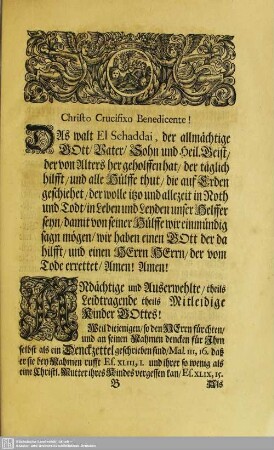 Christo Crucifixo Benedicente!
DAs walt El Schaddai, der allmächtige
GOtt/Vater/Sohn und Heil. Geist/
der von Alters her geholffen hat/ der täglich
hilfft/ und alle Hülffe thut/ die auf Erden
geschiehet/ der wolle itzo und allezeit in Noth
und Todt/ in Leben und Leyden unser Helffer
seyn/ damit von seiner Hülffe wir einmündig
sagn mögen/ wir haben einen GOtt der da
hilfft/ und einen HErrn HErrn/ der vom
Tode errettet/ Amen! Amen!
ANdächtige und Auserwehlte/ theils
Leidtragende theils Mitleidige
Kinder GOttes!
Weil diejenigen/ so den HErrn fürchten/
und an seinen Nahmen dencken für Ihm
selbst als ein Denckzettel geschrieben sind/ Mal. III, 16. daß
er sie bey Nahmen rufft Es. XLIII, 1. und ihrer so wenig als
eine Christl. Mutter ihres Kindes vergessen kan/ Es. XLIX, 15.
B Als